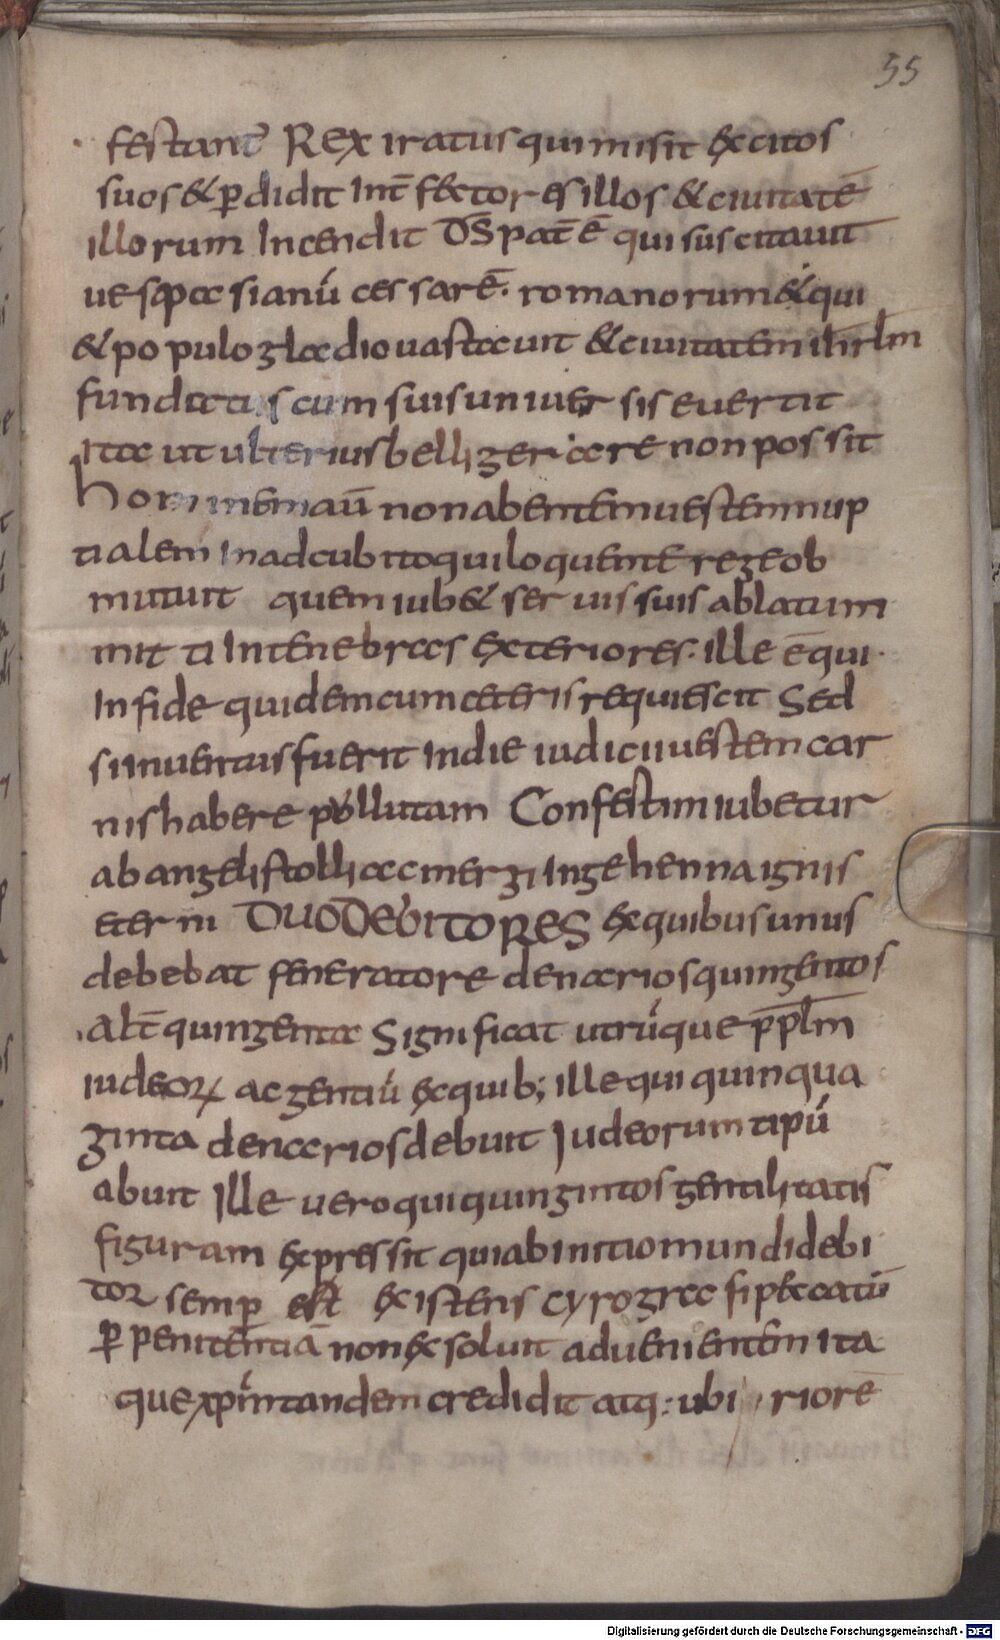 55
festant̄ Rex iratus qui misit excitos
suos & p̱didit Int̄fectores illos & ciuitatē
illorum Incendit D̄S pat̄ ē qui suscitauit
uespasianū cessarē. romanorum & qui
& populo gladio uastauit & ciuitatem ihrlm̄
funditus cum suis uniuersis euertit
Ita ut ulterius belligerare non possit
hominem aū non abentem uestem nup
tialem In adcubito qui loquente rege ob
mutuit quem iub& seruis suis ablatum
mitti In tenebras exteriores. ille ē qui
In fide quidem cum ceteris requiescit Sed
si inuentus fuerit In die iudicii uestem car
nis habere pollutam Confestim iubetur
ab angelis tolli ac mergi In gehenna ignis
eterni DUO DEBITORES ex quibus unus
debebat feneratore denarios quingentos
alt̄ quingenta Significat utrūque pp̄lm
iudeoꝝ ac gentiū ex quib; ille qui quinqua
ginta denarios debuit Iudeorum tipū
abuit Ille uero qui quingintos gentilitatis
figuram expressit qui ab initio mundi debi
tor semp̱ est existens cyrogra fi peccatū
p̱ penitentiā non exsoluit aduenientem ita
que xp̄m tandem credidit atq: ubi riorē
Digitalisierung gefördert durch die Deutsche Forschungsgemeinschaft - DFG